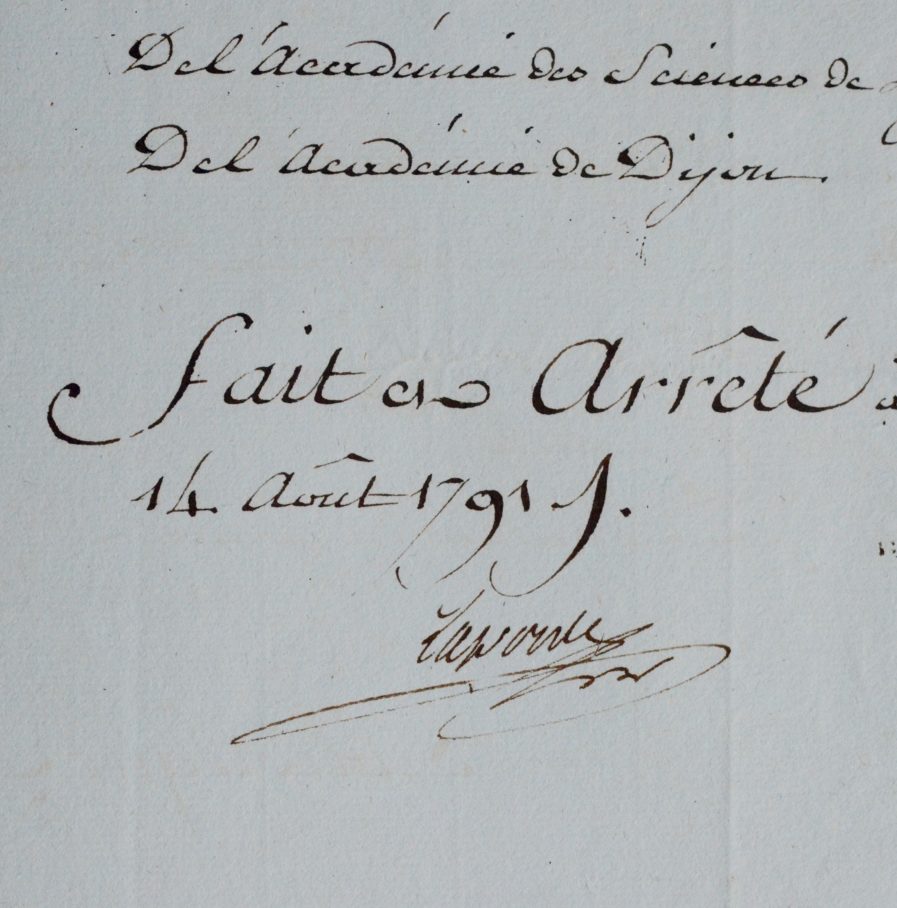 De l'Académie des Sciences de
De l'Académie de Dijon.
fait et Arrêté
14 Août 1791.
Laporte